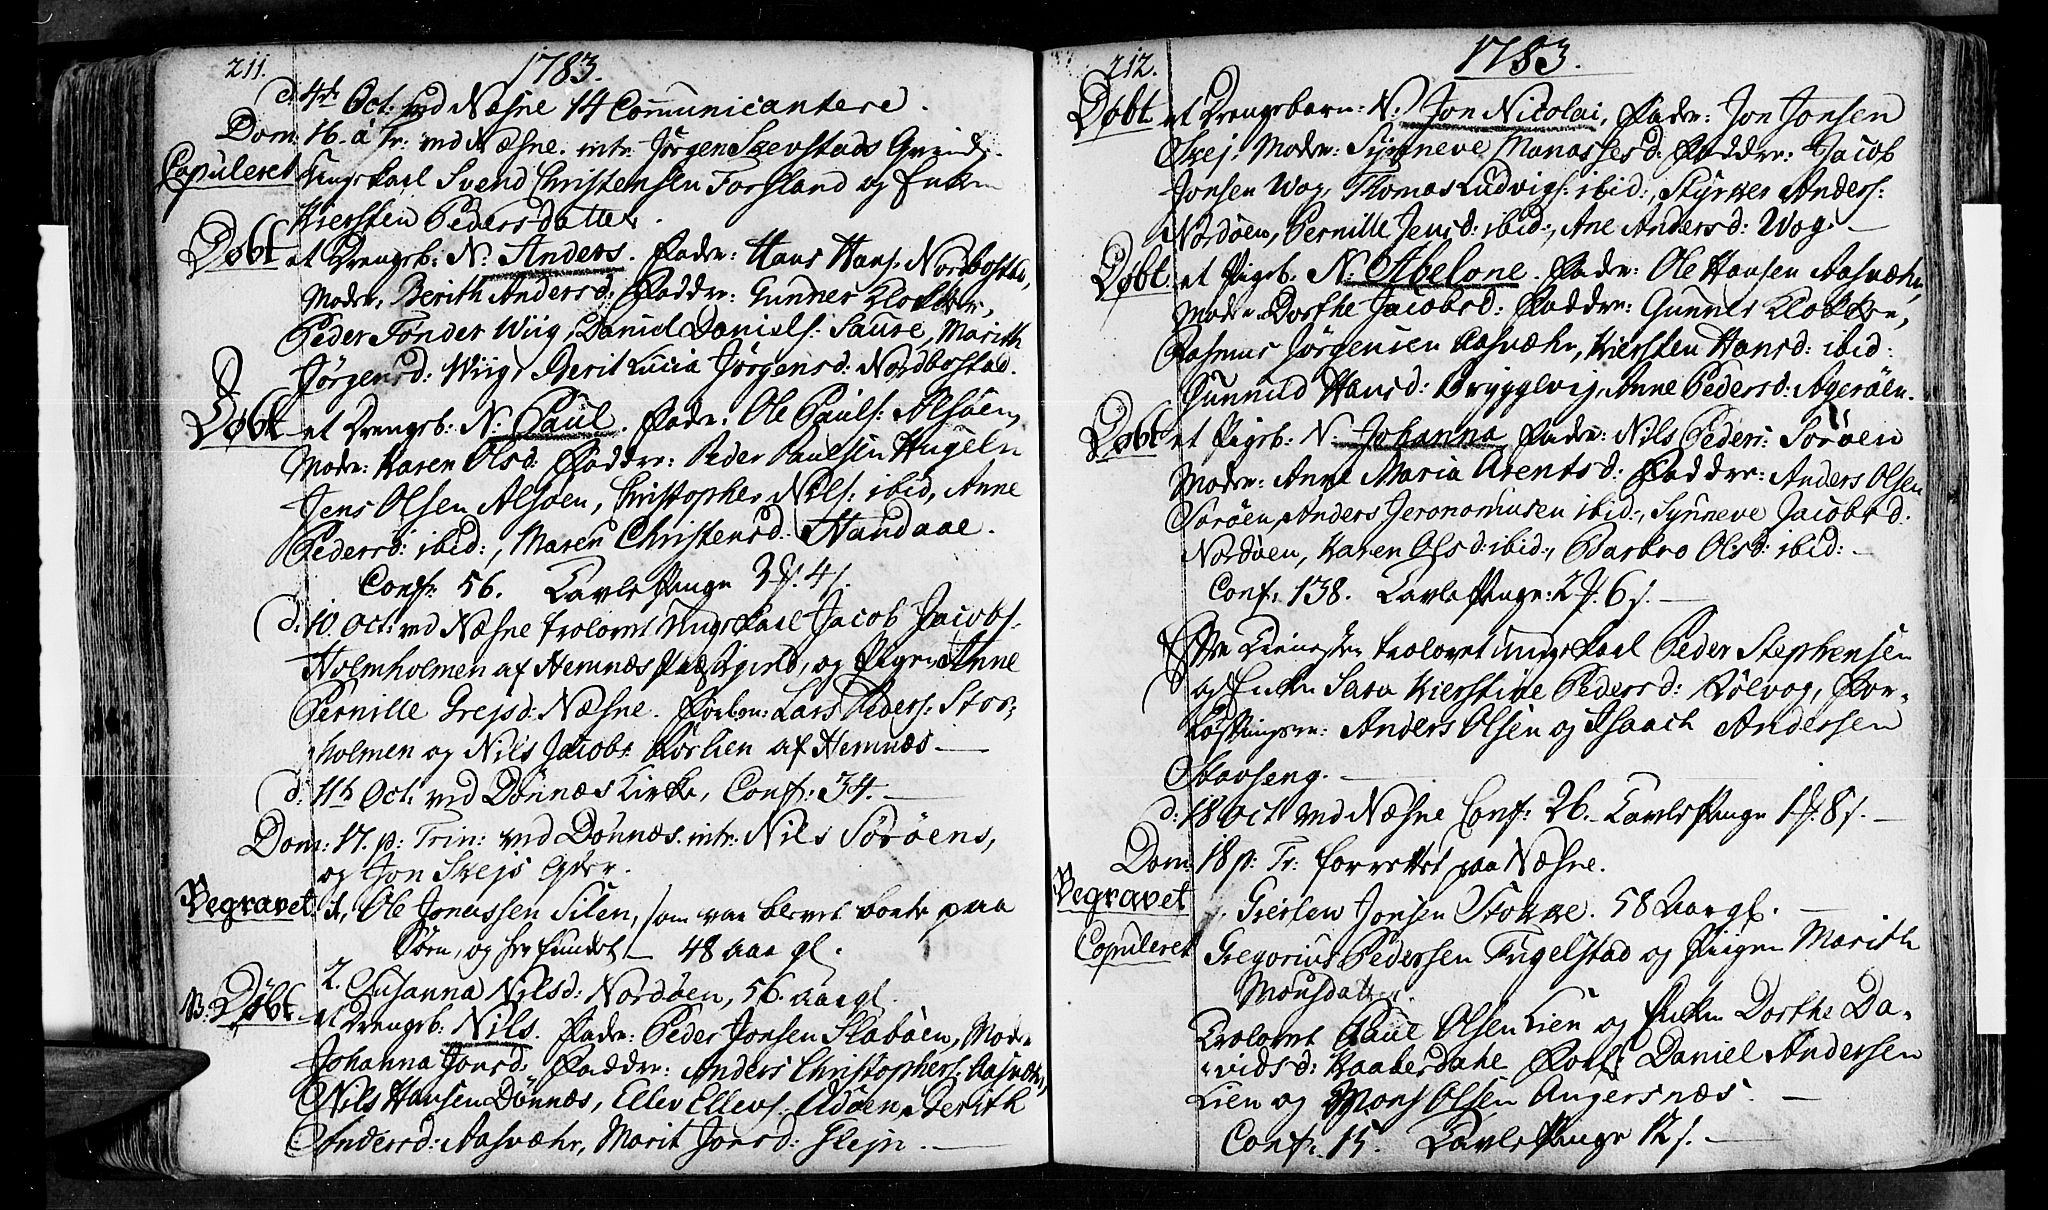 211.
1783.
d: 4de Oct. ved Næsne 14 Communicantere.
Dom: 16. à Tr: ved Næsne. intr: Jörgen Skevstads Qvinde.
Copuleret Ungekarl Svend Christensen Forsland og Enken
Kiersten Pedersdatter.
Döbt et Drengeb: N: Anders. Fader: Hans Hans: Nordbostad,
Moder, Berith Andersd: Faddre: Gunner Klokker,
Peder Tönder Wiig, Daniel Daniels: Saure, Marith
Jörgensd: Wiig, Berit Lucia Jörgensd: Nordbostad.
Döbt et Drengeb: N: Paul. Fader: Ole Pauls: Alsöen,
Moder: Karen Olsd: Faddre: Peder Paulsen Hugeln
Jens Olsen Alsöen, Christopher Nils: ibid, Anne
Pedersd: ibid:, Maren Christensd: Handaae.
Conf: 56. Tavle Penge 3 4 s.
d: 10. Oct: ved Næsne trolovet Ungekarl Jacob Jacobs:
Holmholmen af Hemnæs Præstegield, og Pigen Anne
Pernille Grejsd: Næsne. Forlov: Lars Peders: Stor-
holmen og Nils Jacobs: af Hemnæs —
d: 11te Oct: ved Dönnæs Kirke, Conf: 34. —
Dom: 17. p: Trin: ved Dönnæs. intr: Nils Söröens,
og Jon Skejs
Begravet 1, Ole Jonassen Silen, som var blevet borte paa
Söen, og her fundet — 48 aar gl.
2. Susanna Nilsd: Nordöen, 56. aar gl.
NB: Döbt et Drengeb: Nils. Fader: Peder Jonsen Slaböen, Moder
Johanna Jonsd: Faddre: Anders Christophers: Aasvær,
Nils Hansen Dönnæs, Ellev Ellevs: Berith
Andersd: Aasvæhr, Marit Jonsd: Glejn. —
212.
1783.
Döbt et Drengebarn: N: Jon Nicolai, Fader: Jon Jonsen
Skej: Moder: Synneve Manassesd: Faddre: Jacob
Jonsen Wog, Thomas Ludvigs: ibid:, Styrker Anders:
Nordöen, Pernille Jensd: ibid:, Ane Andersd: Wog. —
Döbt et Pigeb: N: Abelone. Fader: Ole Hansen Aasvæhr,
Moder Dorthe Jacobsd: Faddre: Gunner Klokker,
Rasmus Jörgensen Aasvæhr, Kiersten Hansd: ibid:
Gunnild Hansd: Bryggevig, Anne Pedersd: Ageröen.
Döbt et Pigeb: N: Johanna, Fader: Nils Peders: Soröen
Moder: Anne Maria Arentsd: Faddre: Anders Olsen
Soröen, Anders Jeronomusen ibid:, Synneve Jacobsd:
Nordöen, Karen Olsd: ibid:, Barbro Olsd: ibid: —
Conf: 138. Tavle Penge: 2 6 s. —
Efter Tienesten trolovet Ungekarl Peder Stephensen
og Enken Sara Kierstine Pedersd: Rölvog, For-
lovere: Anders Olsen og Isaach Andersen
Stavseng. —
d: 18 Oct ved Næsne Conf: 26. Tavle Penge 1 8 s. —
Dom: 18 p: Tr: forrettet paa Næsne.
Begravet Giertew Jonsen Stokke. 58 Aar gl. —
Copuleret Gregorius Pedersen Fugelstad og Pigen Marith
Monsdatter.
Trolovet Paul Olsen Lien og Enken Dorthe Da-
vidsd: Kaabersdahl Forl: Daniel Andersen
Lien og Mons Olsen Angersnæs. —
Conf. 15. Tavle Penge 12 s. —